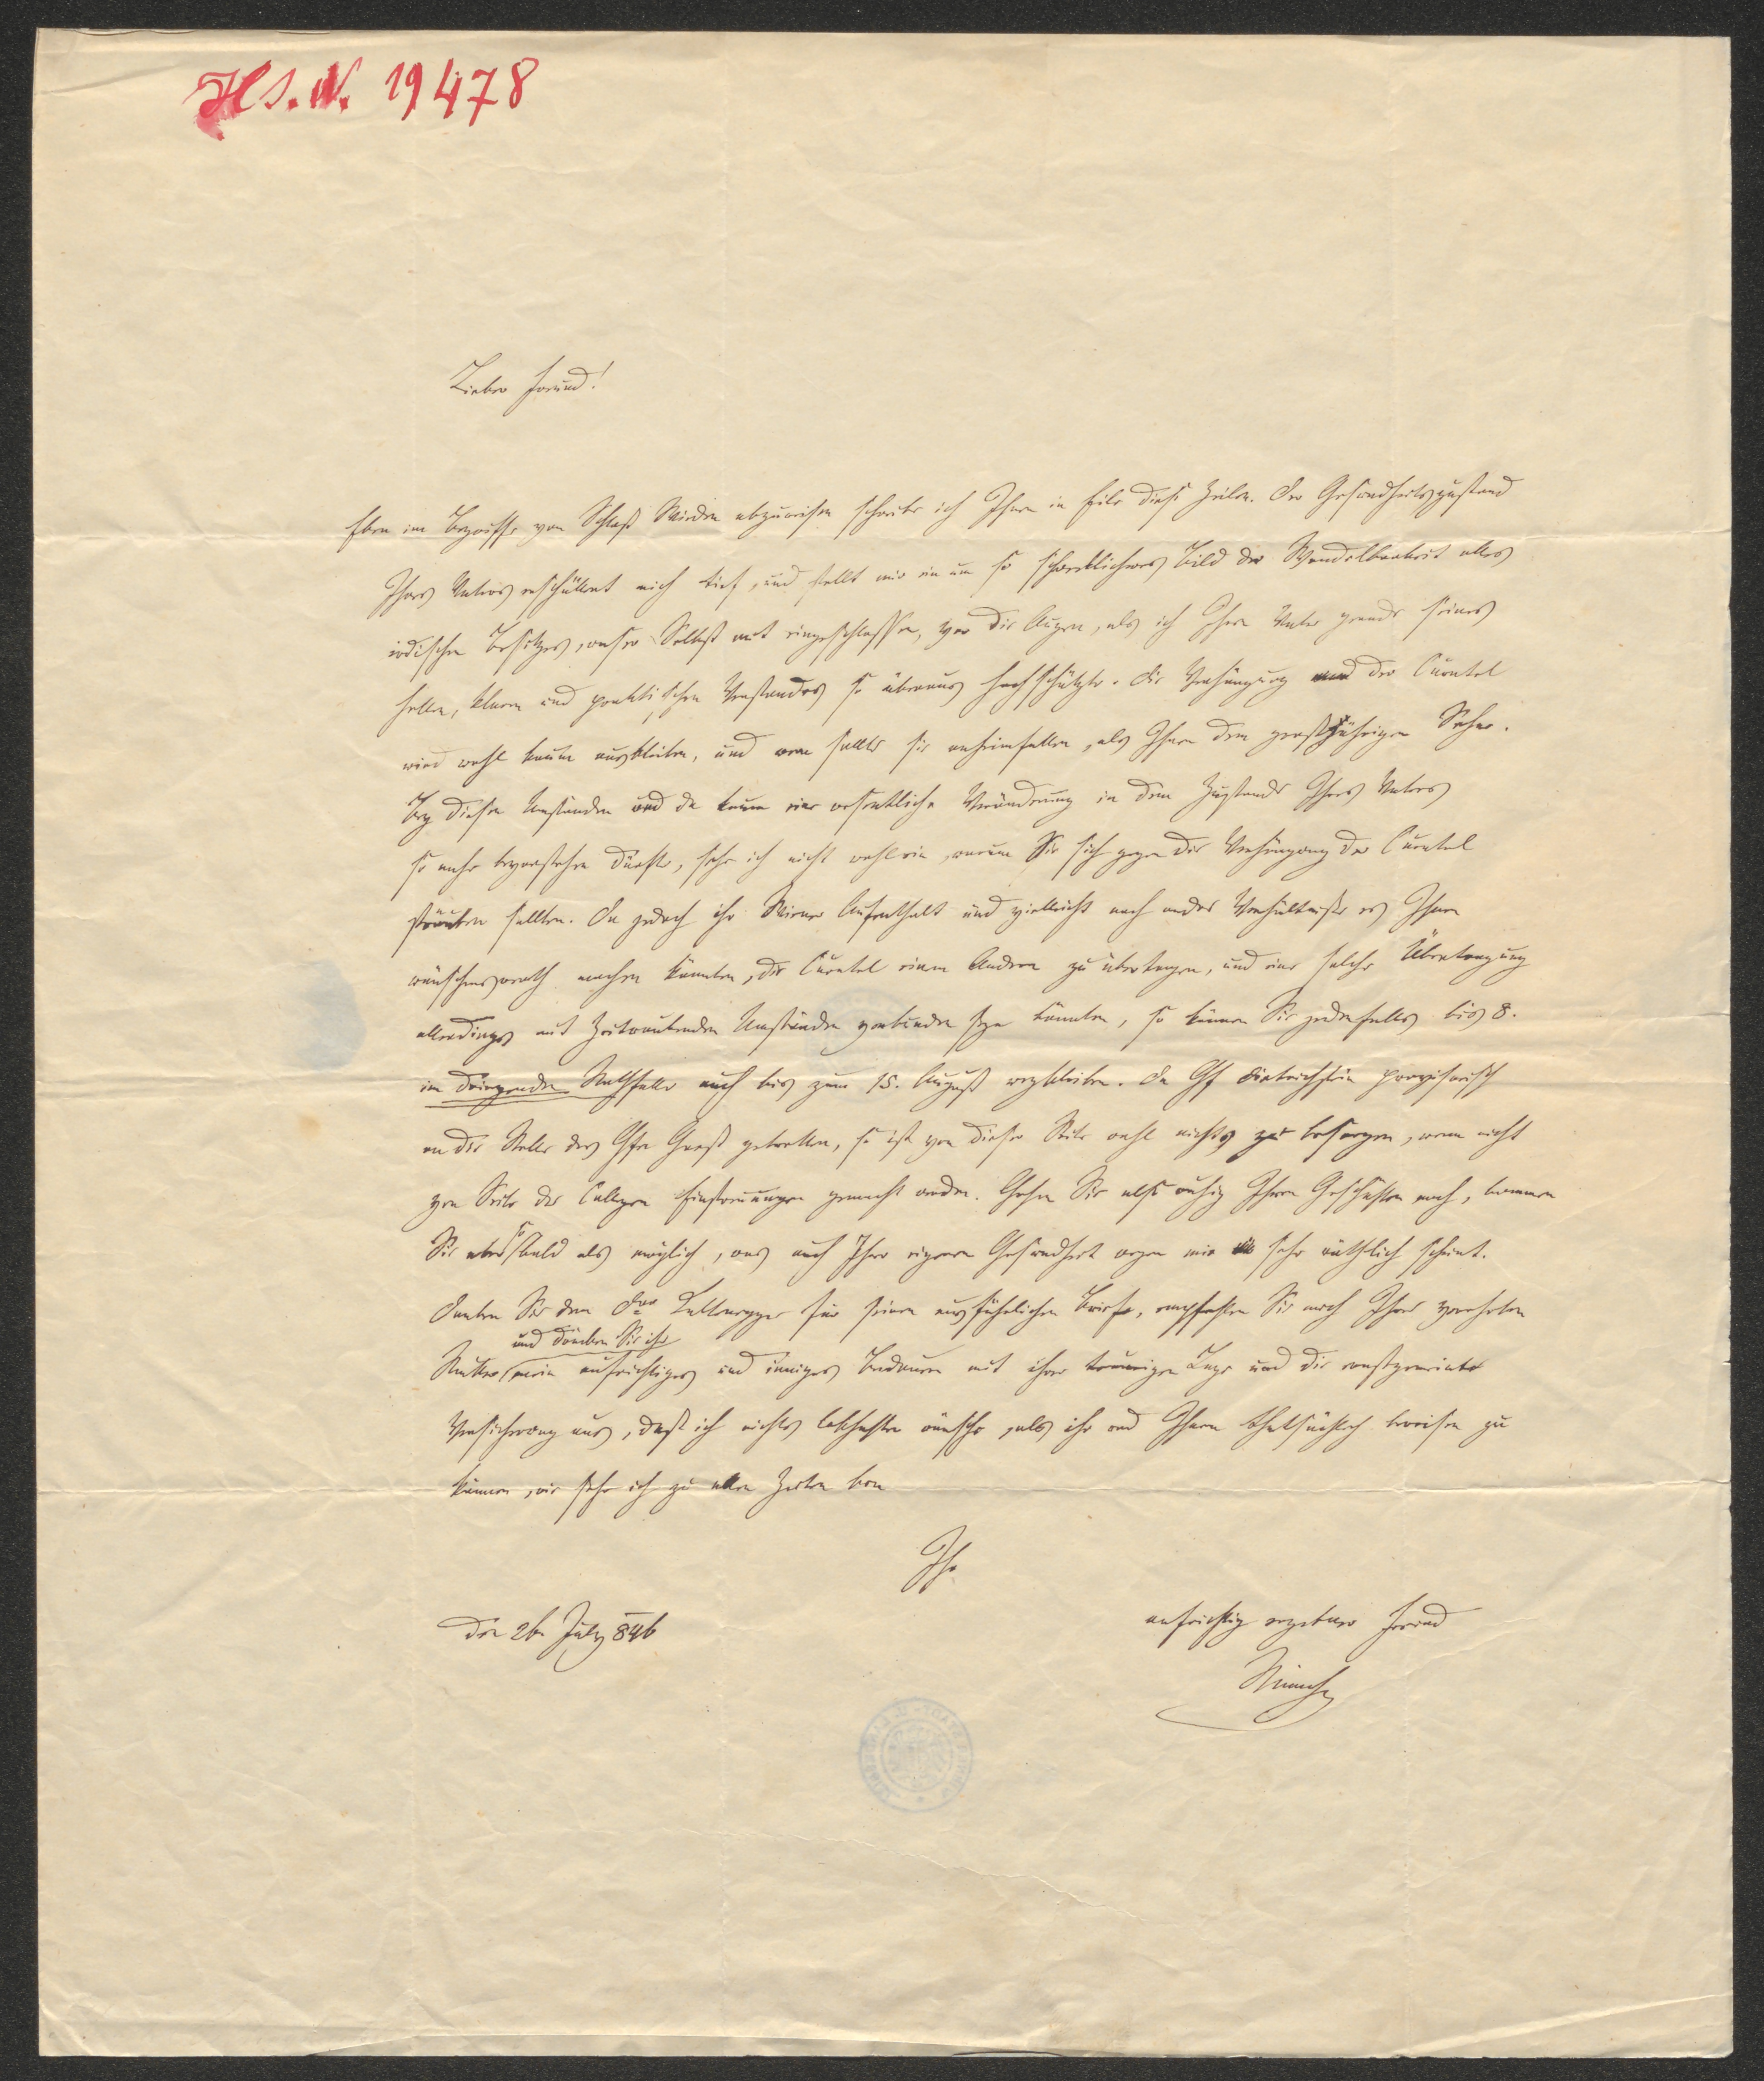 Hs. N. 19478
Lieber Freund!
Eben im Begriffe von Schloß abzureisen schreibe ich Ihnen in Eile diese Zeilen. Der Gesundheitszustand
Ihres Vaters erschüttert mich tief, und stellt mir ein um so schrecklicheres Bild der Wandelbarkeit alles
irdischen Besitzes, unser Selbst mit eingeschlossen, vor die Augen, als ich Ihren Vater gerade seines
hellen, klaren und praktischen Verstandes so überaus hochschätzte. Die Verhängung der Curatel
wird wohl kaum ausbleiben, und wem sollte sie anheimfallen, als Ihnen dem großjährigen Sohne.
Bey diesen Umständen und da kaum eine wesentliche Veränderung in dem Zustande Ihres Vaters
so nahe bevorstehen dürfte, sehe ich nicht wohl ein, warum Sie sich gegen die Verhängung der Curatel
sträuben sollten. Da jedoch ihr Wiener Aufenthalt und vielleicht noch andre Verhältniße es Ihnen
wünschenswerth machen könnten, die Curatel einem Andern zu übertragen, und eine solche Übertragung
allerdings mit Zeitraubenden Umständen verbunden seyn könnte, so können Sie jedenfalls bis 8.
im dringenden Nothfalle auch bis zum 15. August wegbleiben. Da Gf Dietrichstein provisorisch
an die Stelle des Gfen getretten, so ist von dieser Seite wohl nichts zu besorgen, wenn nicht
von Seite der Collegen Einstreuungen gemacht werden. Gehen Sie also ruhig Ihren Geschäften nach, kommen
Sie aber so bald als möglich, was auch Ihrer eigenen Gesundheit wegen mir sehr räthlich scheint.
Danken Sie dem für seinen ausführlichen Brief, empfehlen Sie mich Ihrer verehrten
und drücken Sie ihr
Mutter mein aufrichtiges und inniges Bedauern mit ihrer traurigen Lage und die ernstgemeinte
Versicherung aus, daß ich nichts lebhafter wünsche, als ihr und Ihnen thatsächlich beweisen zu
können, wie sehr ich zu allen Zeiten bin
Ihr
aufrichtig ergebner Freund
den 26 July 846
Münch